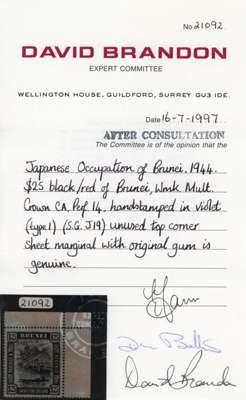 No. 21092
DAVID BRANDON
EXPERT COMMITTEE
WELLINGTON HOUSE, GUILDFORD, SURREY GU3 1DE.
Date 16-7-1997.
AFTER CONSULTATION
The Committee is of the opinion that the
Japanese Occupation of Brunei. 1944.
$25 black/red of Brunei, Wmk Mult.
Crown CA. Perf 14, handstamped in violet
(type 1) (S.G. J19) unused top corner
sheet marginal with original gum is
genuine.
David Brandon
21092
BRUNEI